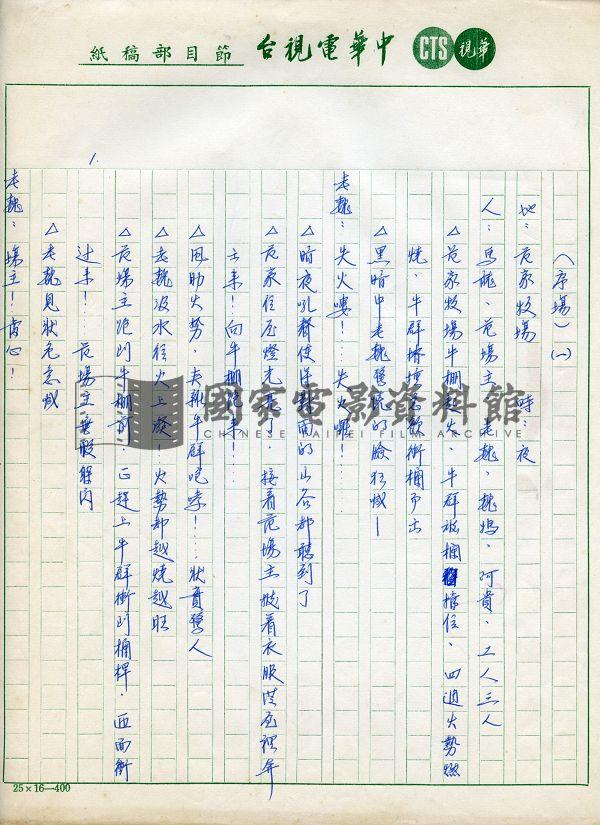 紙稿部目節 台視電華中 CTS 視華
(序場)(一)
地：范家牧場 時：夜
人：馬龍、范場主、老魏、魏媽、阿貴、工人三人
△范家牧場牛棚起火、牛群被欄擋住、四週火勢燃
燒、牛群掙撞著欲衝欄而出
△黑暗中老魏驚慌的臉狂喊—
老魏：失火嘍！…失火嘍！……
△暗夜吼聲使對面的山谷都聽到了
△范家住屋燈光亮了．接着范場主披着衣服從屋裡奔
出來！向牛棚
△風助火勢．夫牛群咆哮！…狀貴驚人
△老魏汲水往火上潑！火勢却越燒越旺
△范場主跑到牛棚前．正趕上牛群衝門欄桿．迎面衝
过來！…范場主
△老魏見狀危急喊
老魏：場主！當心！
1.
國家電影資料館
CHINESE TAIPEI FILM ARCHIVE
25×16—400